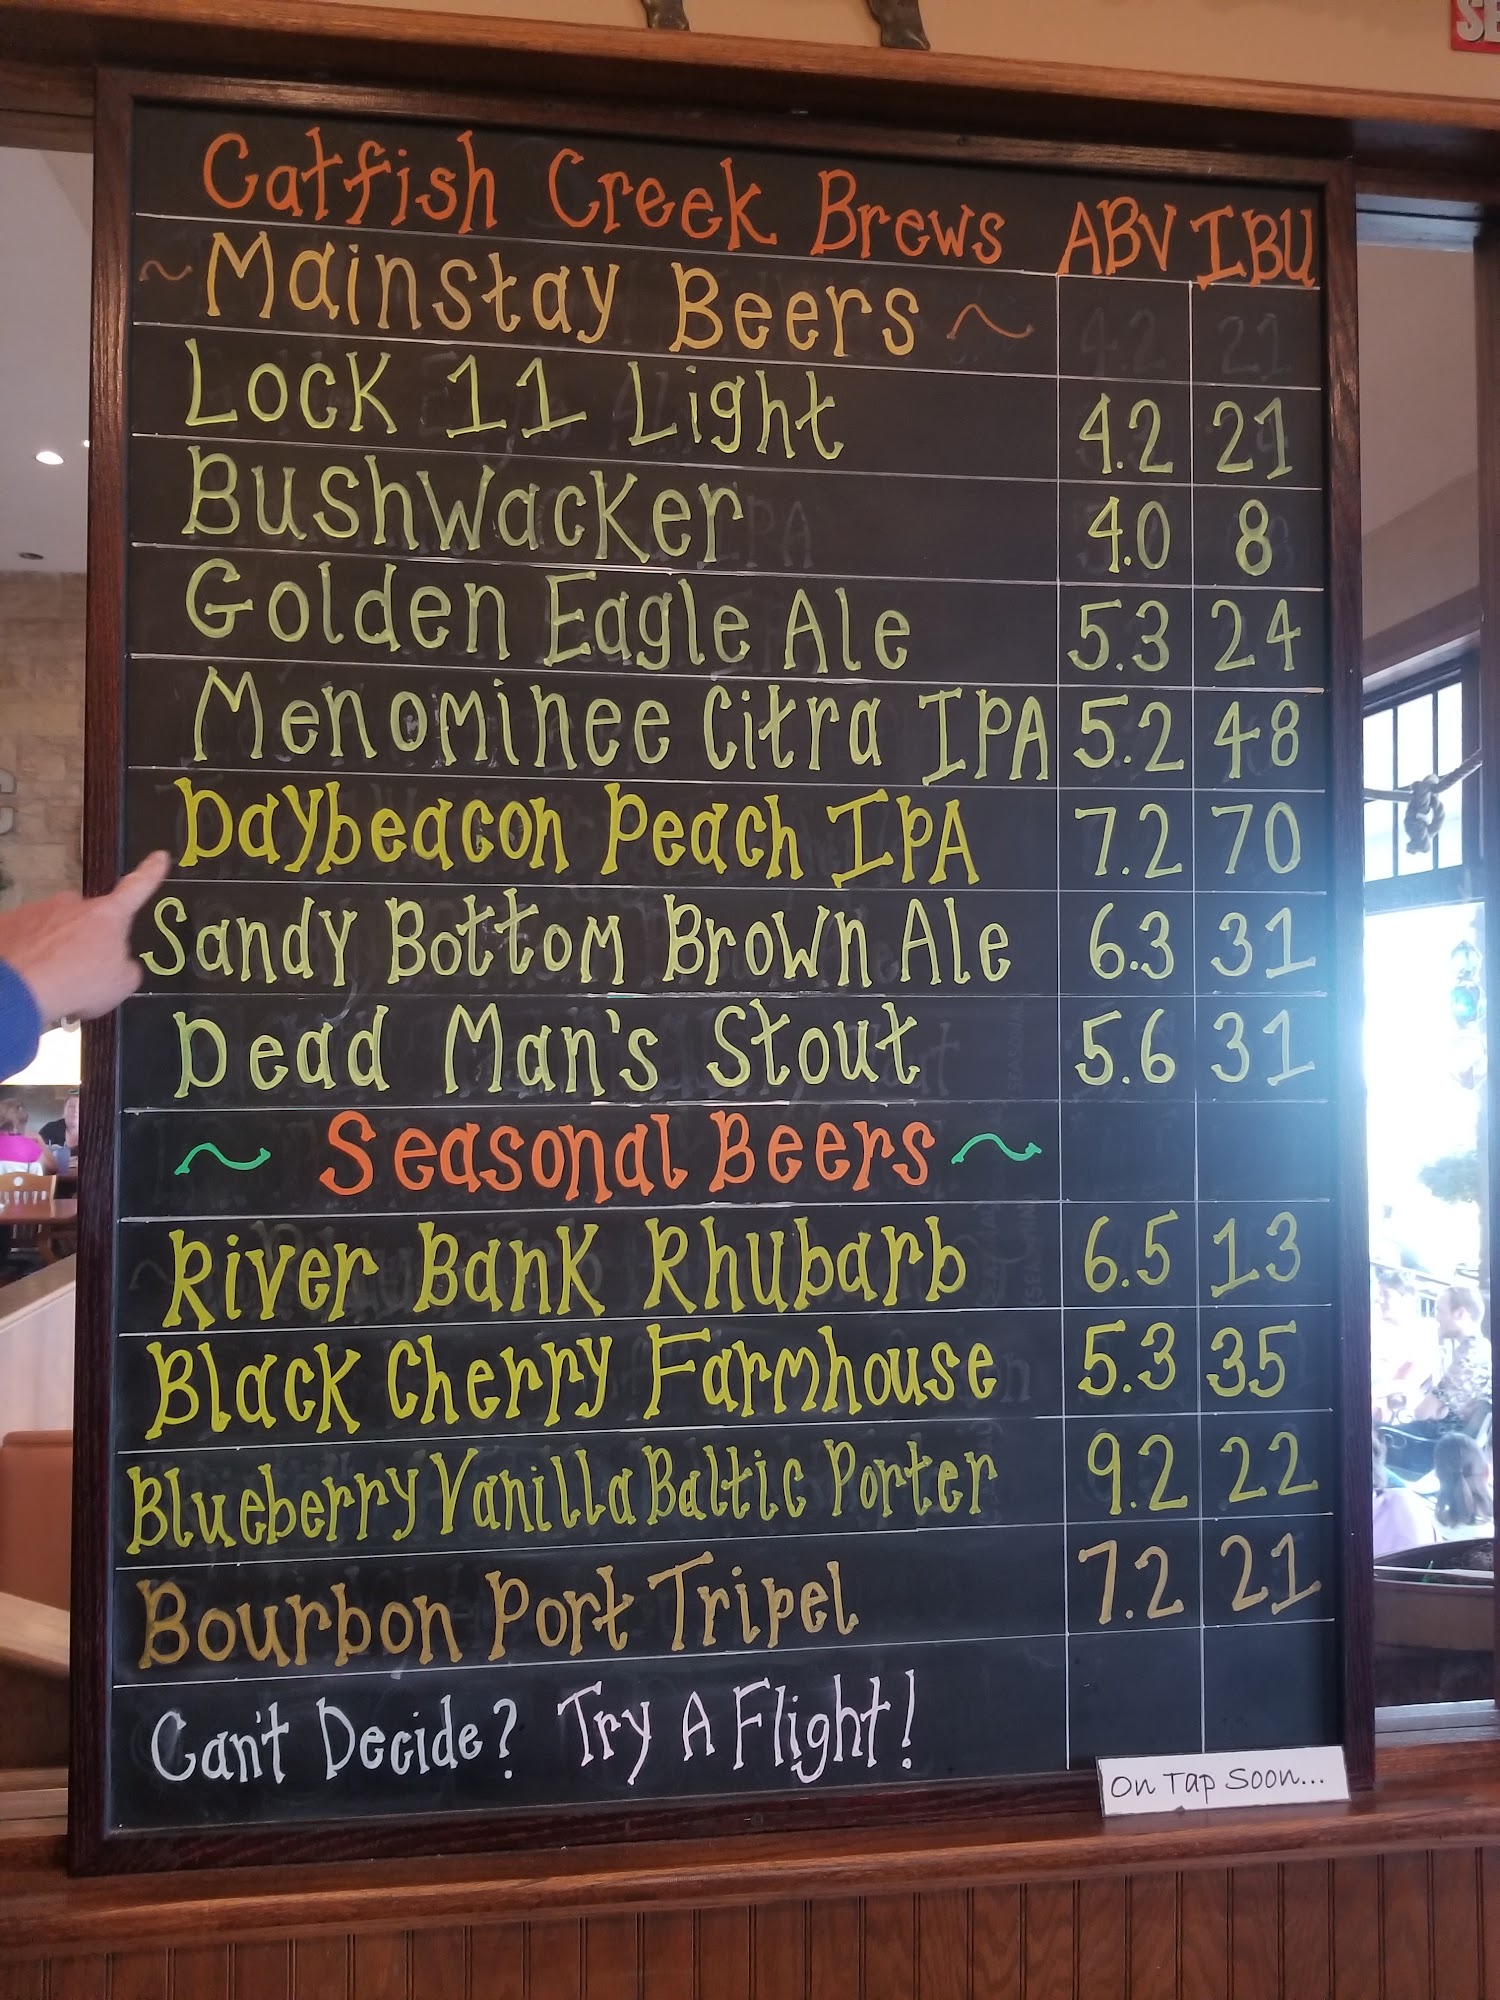 Catfish Creek Brews ABV IBU
~ Mainstay Beers ~
Lock 11 Light 4.2 21
Bushwacker 4.0 8
Golden Eagle Ale 5.3 24
Menominee Citra IPA 5.2 48
Daybeacon Peach IPA 7.2 70
Sandy Bottom Brown Ale 6.3 31
Dead Man's Stout 5.6 31
~ Seasonal Beers ~
River Bank Rhubarb 6.5 13
Black Cherry Farmhouse 5.3 35
Blueberry Vanilla Baltic Porter 9.2 22
Bourbon Port Tripel 7.2 21
Can't Decide? Try A Flight!
On Tap Soon...